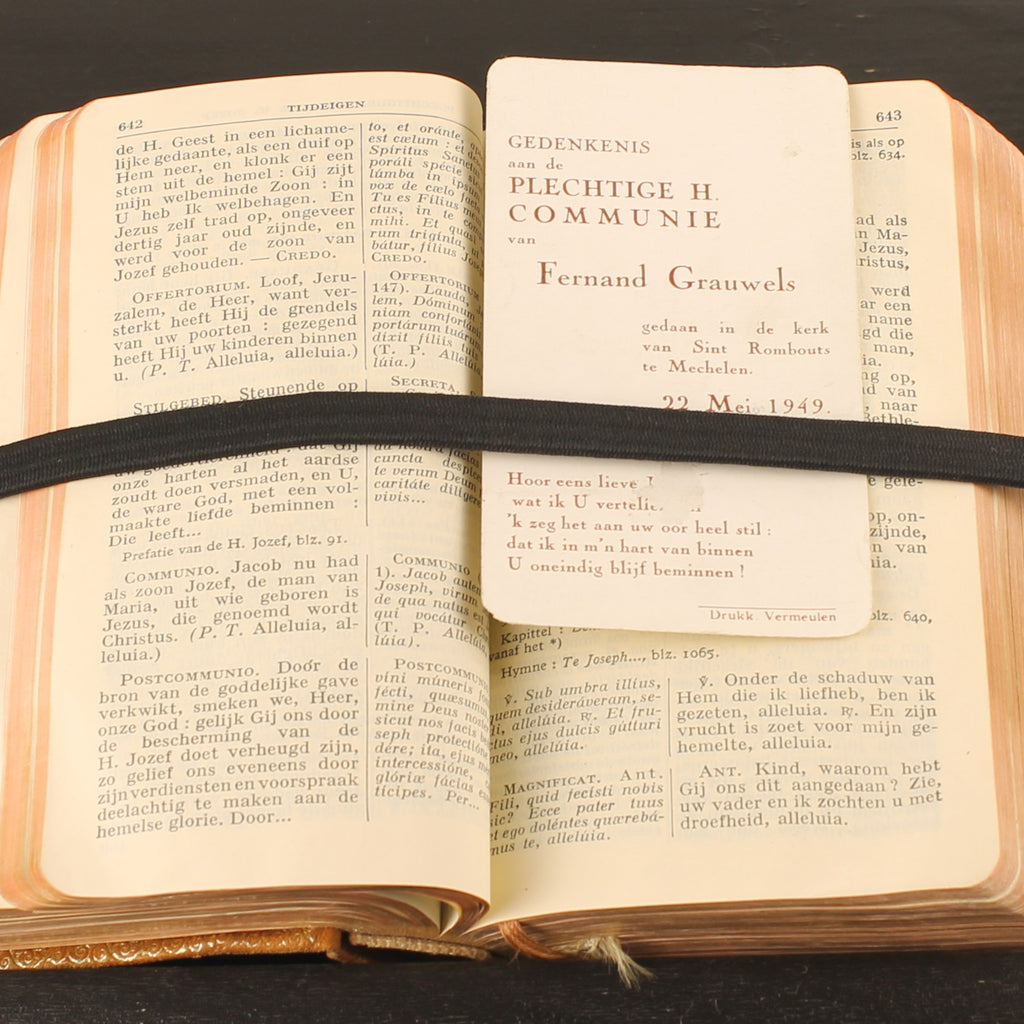 642
TIJDEIGEN
de H. Geest in een lichame-
lijke gedaante, als een duif op
Hem neer, en klonk er een
stem uit de hemel : Gij zijt
mijn welbeminde Zoon : in
U heb Ik welbehagen. En
Jezus zelf trad op, ongeveer
dertig jaar oud zijnde, en
werd voor de zoon van
Jozef gehouden. — CREDO.
OFFERTORIUM. Loof, Jeru-
zalem, de Heer, want ver-
sterkt heeft Hij de grendels
van uw poorten : gezegend
heeft Hij uw kinderen binnen
u. (P. T. Alleluia, alleluia.)
STILGEBED. Steunende op
onze harten al het aardse
zoudt doen versmaden, en U,
de ware God, met een vol-
maakte liefde beminnen :
Die leeft...
Prefatie van de H. Jozef, blz. 91.
COMMUNIO. Jacob nu had
als zoon Jozef, de man van
Maria, uit wie geboren is
Jezus, die genoemd wordt
Christus. (P. T. Alleluia, al-
leluia.)
POSTCOMMUNIO. Doór de
bron van de goddelijke gave
verkwikt, smeken we, Heer,
onze God : gelijk Gij ons door
de bescherming van de
H. Jozef doet verheugd zijn,
zo gelief ons eveneens door
zijn verdiensten en voorspraak
deelachtig te maken aan de
hemelse glorie. Door...
to, et oránte,
est cælum : et
Spíritus
poráli spécie
lúmba in ipsum
vox de cælo
Tu es Fílius
ctus, in te
mihi. Et
rum triginta,
bátur, fílius
CREDO.
OFFERTORIUM
147). Lauda,
lem, Dóminum
niam
portárum tuárum
dixit fíliis tuis
(T. P.
lúia.)
SECRETA.
cuncta
te verum Deum
caritáte
vivis...
COMMUNIO
1). Jacob autem
Joseph, virum
de qua natus est
qui vocátur
(T. P.
lúia).
POSTCOMMUN
vini múneris
fécti, quæsumus
mine Deus
sicut nos facis
seph protectióne
dére; ita, ejus
intercessióne,
glóriæ fácias
tícipes. Per...
GEDENKENIS
aan de
PLECHTIGE H.
COMMUNIE
van
Fernand Grauwels
gedaan in de kerk
van Sint Rombouts
te Mechelen.
22 Mei 1949.
Hoor eens lieve
wat ik U
'k zeg het aan uw oor heel stil :
dat ik in m'n hart van binnen
U oneindig blijf beminnen !
Drukk Vermeulen
643
is als op
blz. 634.
als
Jezus,
werd
een
name
die
man,
op,
van
naar
van
blz. 640,
Kapittel :
vanaf het *)
Hymne : Te Joseph..., blz. 1065.
℣. Sub umbra illíus,
quem desideráveram, se-
di, allelúia. ℟. Et fru-
ctus ejus dulcis gútturi
meo, allelúia.
MAGNIFICAT. Ant.
Fili, quid fecísti nobis
sic? Ecce pater tuus
et ego doléntes quærebá-
mus te, allelúia.
℣. Onder de schaduw van
Hem die ik liefheb, ben ik
gezeten, alleluia. ℟. En zijn
vrucht is zoet voor mijn ge-
hemelte, alleluia.
ANT. Kind, waarom hebt
Gij ons dit aangedaan? Zie,
uw vader en ik zochten u met
droefheid, alleluia.